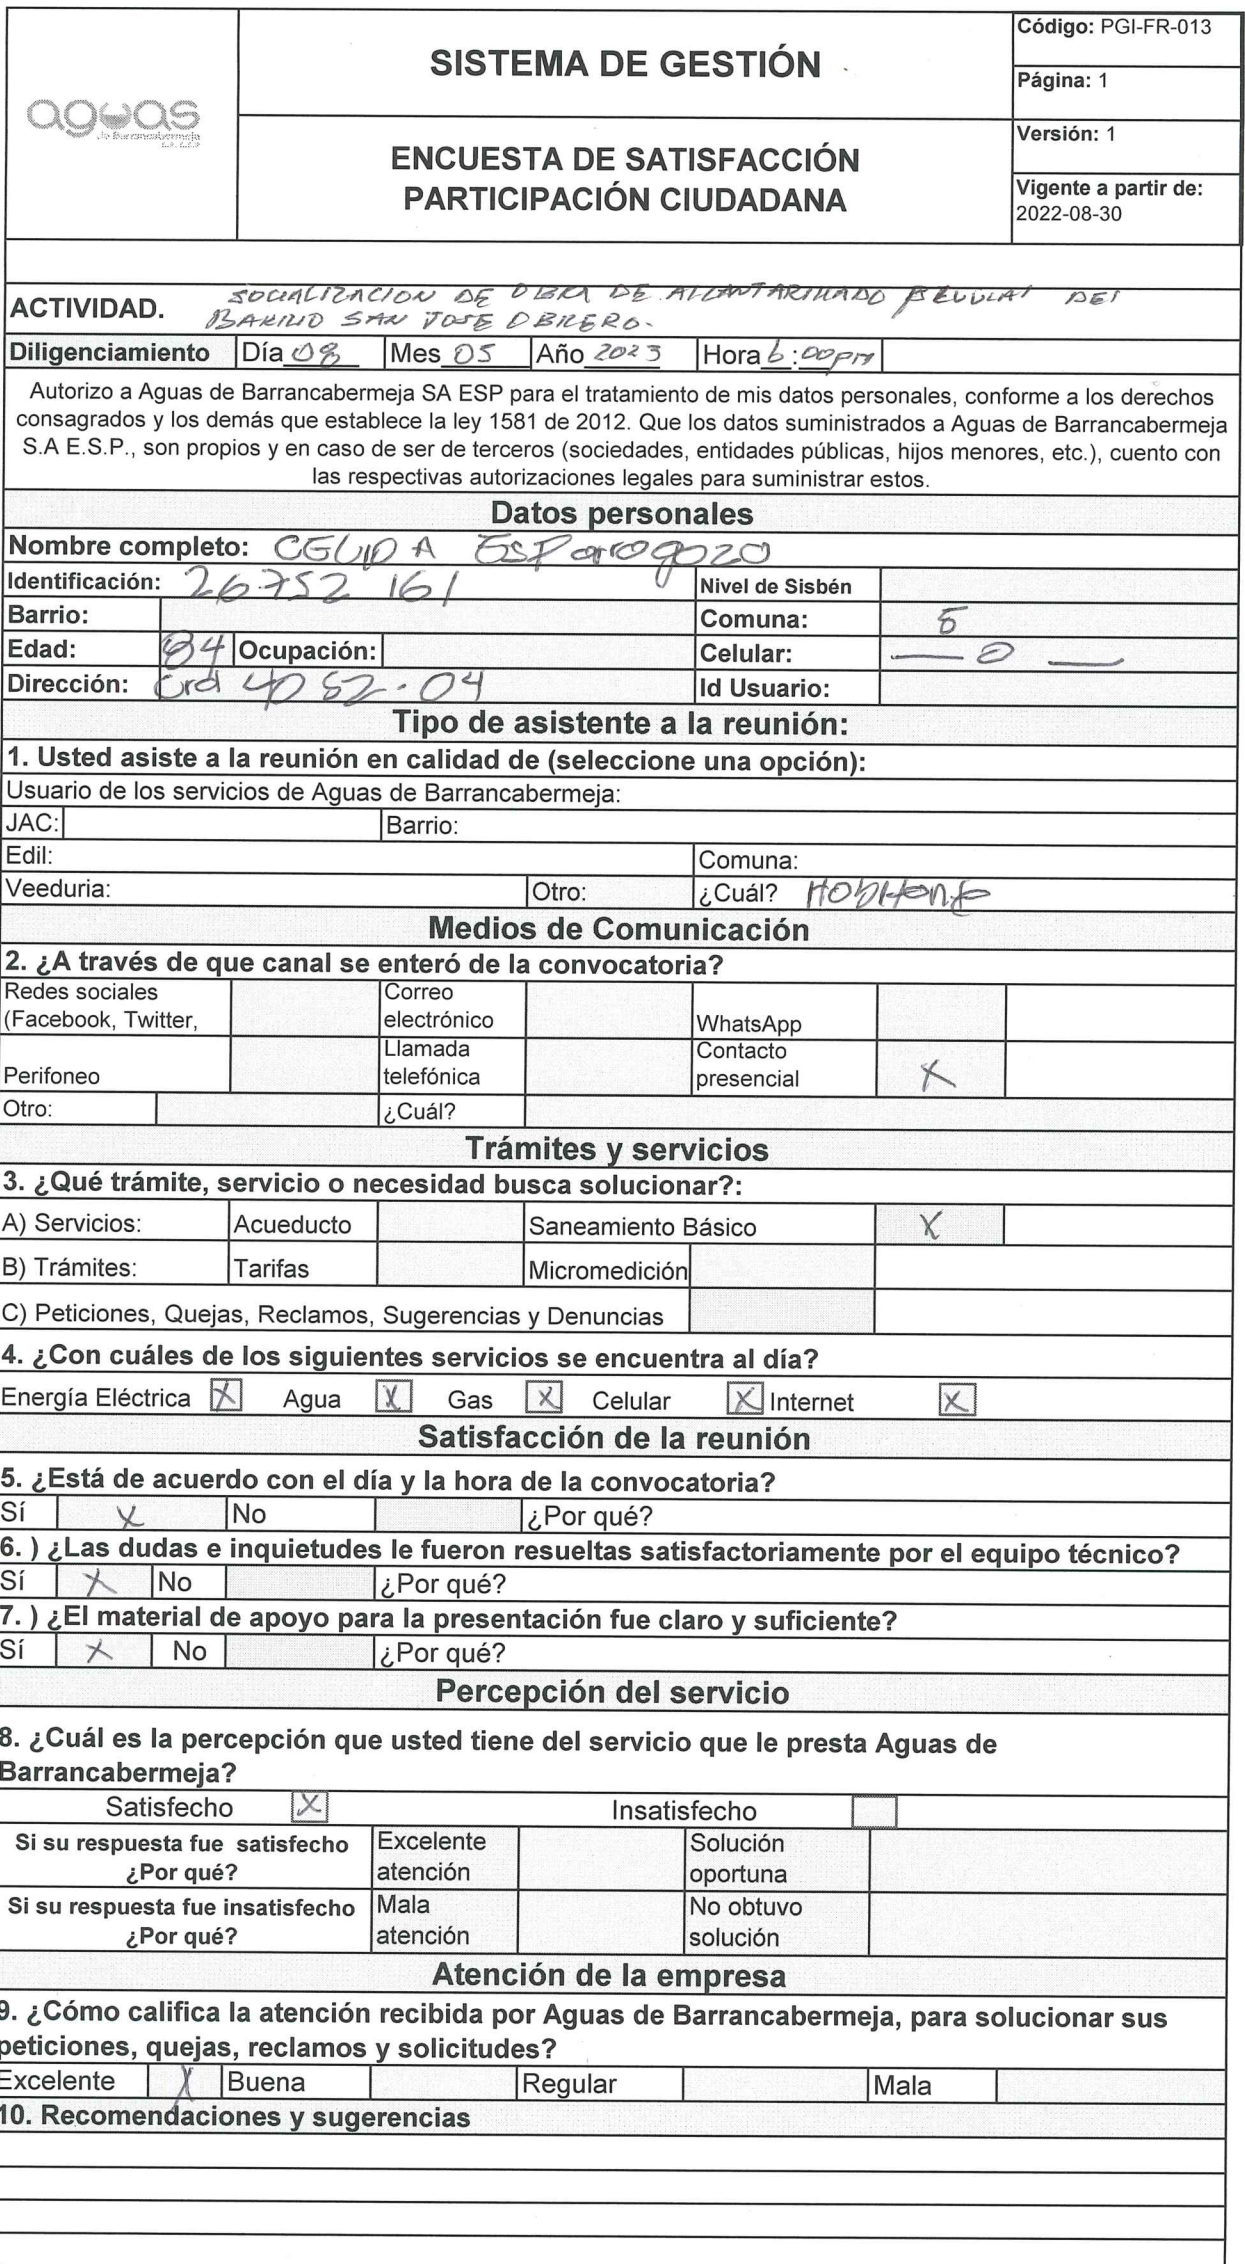 aguas
de Barrancabermeja
SISTEMA DE GESTIÓN
ENCUESTA DE SATISFACCIÓN
PARTICIPACIÓN CIUDADANA
Código: PGI-FR-013
Página: 1
Versión: 1
Vigente a partir de:
2022-08-30
SOCIALIZACION DE OBRA DE ALCANTARILLADO DEL
ACTIVIDAD.
BARRIO SAN JOSE OBRERO.
Diligenciamiento Día 08 Mes 05 Año 2023 Hora 6:00pm
Autorizo a Aguas de Barrancabermeja SA ESP para el tratamiento de mis datos personales, conforme a los derechos
consagrados y los demás que establece la ley 1581 de 2012. Que los datos suministrados a Aguas de Barrancabermeja
S.A E.S.P., son propios y en caso de ser de terceros (sociedades, entidades públicas, hijos menores, etc.), cuento con
las respectivas autorizaciones legales para suministrar estos.
Datos personales
Nombre completo: CELIDA ESParragozo
Identificación: 26752 161 Nivel de Sisbén
Barrio: Comuna: 5
Edad: 84 Ocupación: Celular: — 0 —
Dirección: Crd 40 52-04 Id Usuario:
Tipo de asistente a la reunión:
1. Usted asiste a la reunión en calidad de (seleccione una opción):
Usuario de los servicios de Aguas de Barrancabermeja:
JAC: Barrio:
Edil: Comuna:
Veeduria: Otro: ¿Cuál?
Medios de Comunicación
2. ¿A través de que canal se enteró de la convocatoria?
Redes sociales
(Facebook, Twitter,
Correo
electrónico
WhatsApp
Perifoneo
Llamada
telefónica
Contacto
presencial X
Otro: ¿Cuál?
Trámites y servicios
3. ¿Qué trámite, servicio o necesidad busca solucionar?:
A) Servicios: Acueducto Saneamiento Básico X
B) Trámites: Tarifas Micromedición
C) Peticiones, Quejas, Reclamos, Sugerencias y Denuncias
4. ¿Con cuáles de los siguientes servicios se encuentra al día?
Energía Eléctrica X Agua X Gas X Celular X Internet X
Satisfacción de la reunión
5. ¿Está de acuerdo con el día y la hora de la convocatoria?
Sí X No ¿Por qué?
6. ) ¿Las dudas e inquietudes le fueron resueltas satisfactoriamente por el equipo técnico?
Sí X No ¿Por qué?
7. ) ¿El material de apoyo para la presentación fue claro y suficiente?
Sí X No ¿Por qué?
Percepción del servicio
8. ¿Cuál es la percepción que usted tiene del servicio que le presta Aguas de
Barrancabermeja?
Satisfecho X Insatisfecho
Si su respuesta fue satisfecho
¿Por qué?
Excelente
atención
Solución
oportuna
Si su respuesta fue insatisfecho
¿Por qué?
Mala
atención
No obtuvo
solución
Atención de la empresa
9. ¿Cómo califica la atención recibida por Aguas de Barrancabermeja, para solucionar sus
peticiones, quejas, reclamos y solicitudes?
Excelente X Buena Regular Mala
10. Recomendaciones y sugerencias